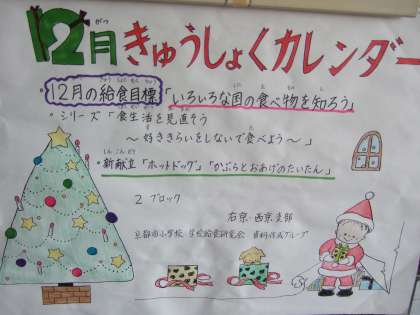 12月きゅうしょくカレンダー
がつ
12月の給食目標「いろいろな国の食べ物を知ろう」
・シリーズ「食生活を見直そう
～好ききらいをしないで食べよう～」
・新献立「ホットドッグ」「かぶらとおあげのたいたん」
しんこんだて
2 ブロック
右京・西京支部
京都市小学校・学校給食研究会 資料作成グループ